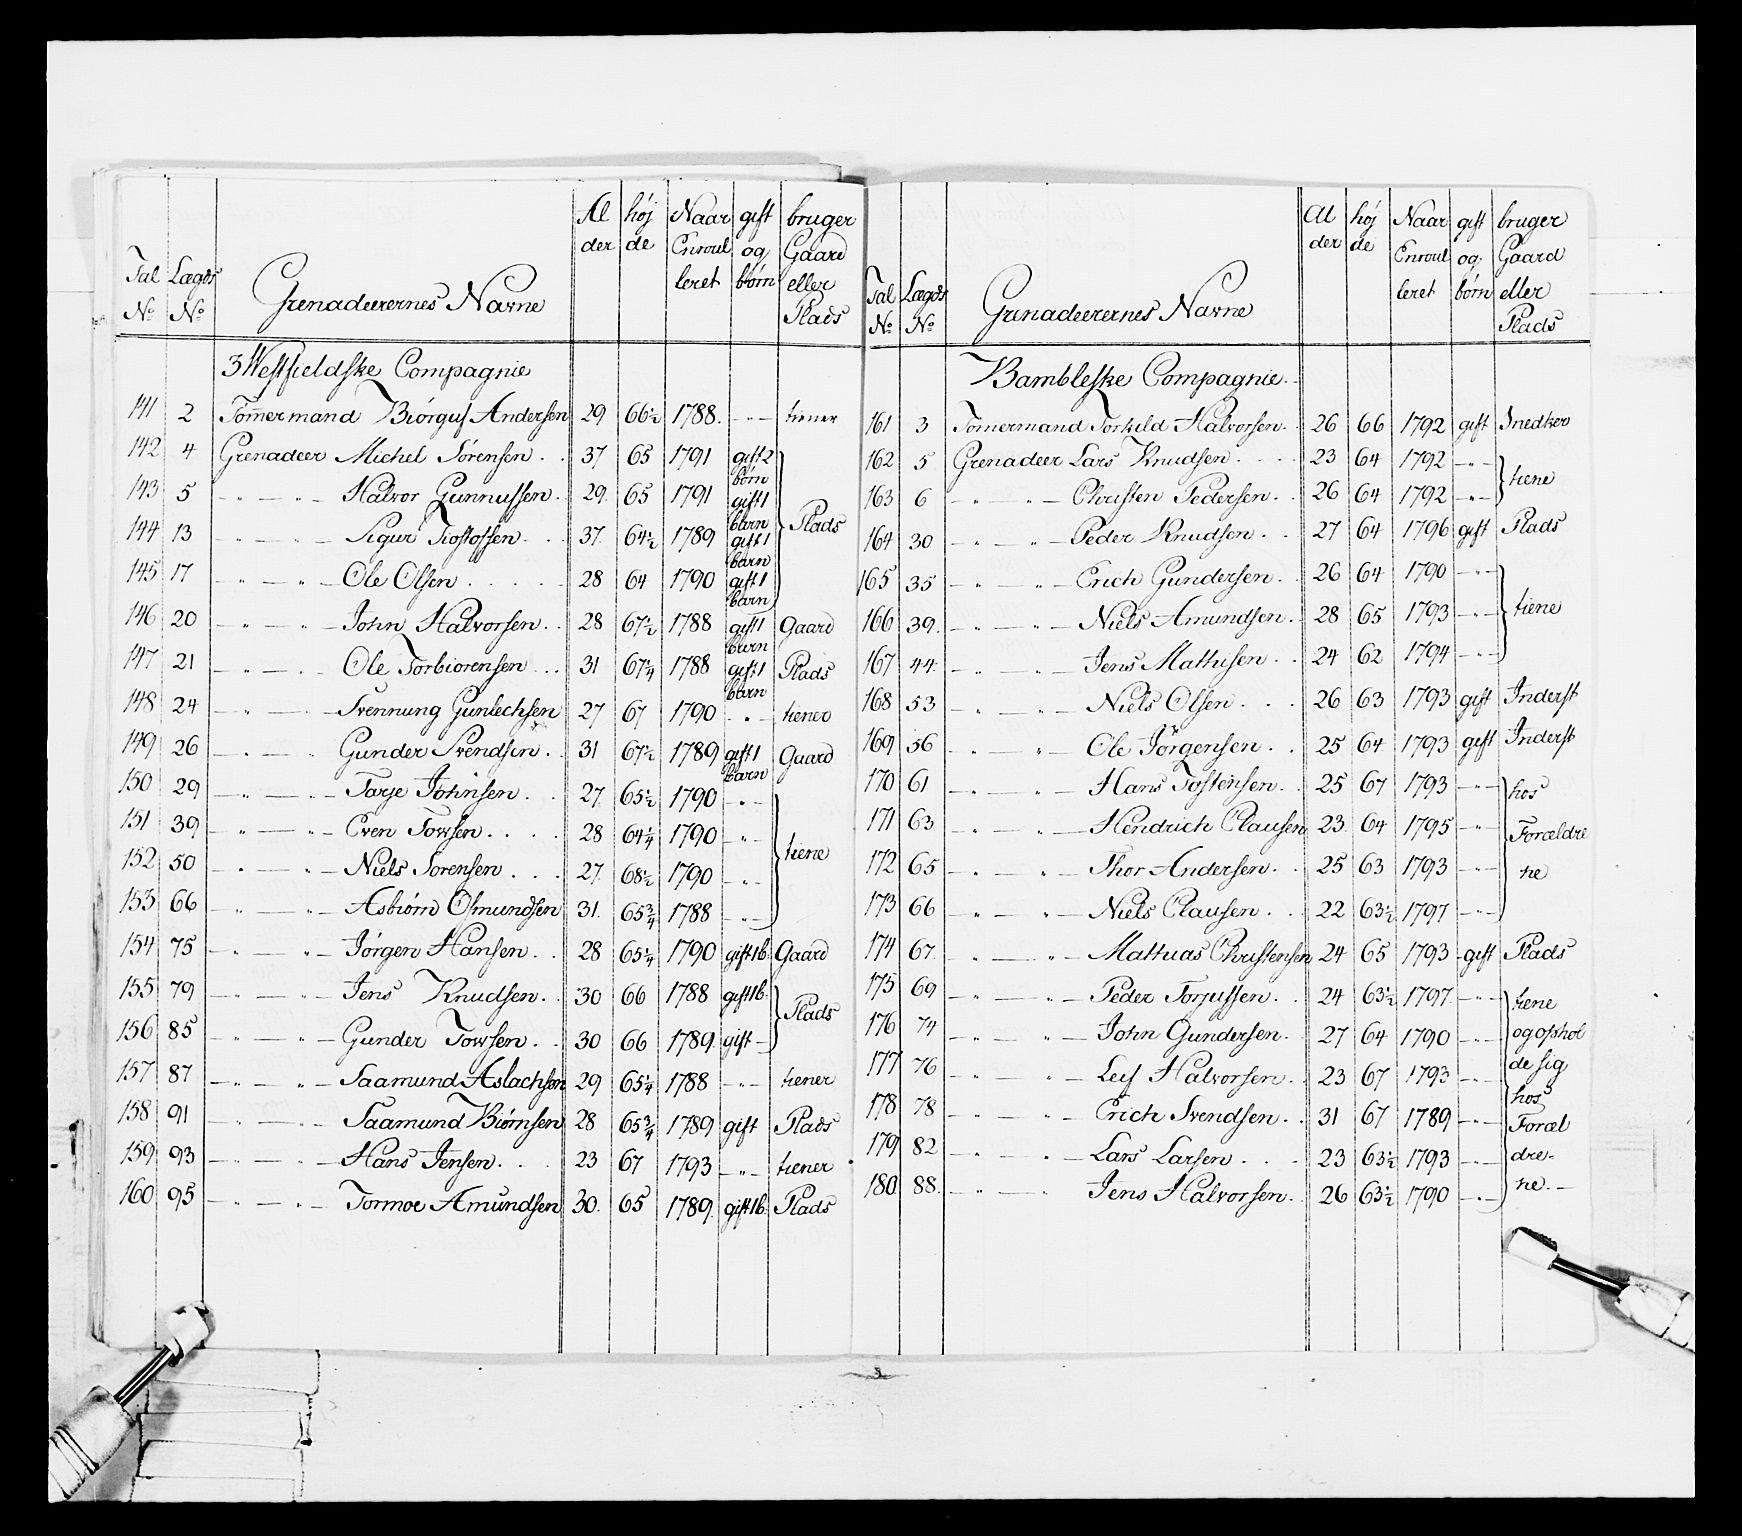 Tal No | Lægds No | Grenadeerernes Navne | Al der | høj de | Naar Enroul leret | gift og børn | bruger Gaard eller Plads
3 Westfieldske Compagnie
141 2 Tom̄ermand Biórguf Andersen 29 66½ 1788. -"- tiener
142 4 Grenadeer Michel Sórensen . . 37 65 1791 gift 2 børn } Plads
143 5 -"- -"- Halvor Gunnussen . 29. 65 1791 gift 1 barn
144 13 -"- -"- Sigur Tiostofsen . . . 37. 64½ 1789 gift 1 barn
145 17 -"- -"- Ole Olsen . . . . . 28 64 1790 gift 1 barn
146 20 -"- -"- John Halvorsen . . 28 67½ 1788 gift 1 barn Gaard
147 21 -"- -"- Ole Torbiorensen . . . 31 67¼ 1788 gift 1 barn Plads
148 24 -"- -"- Svennung Gunlechsen 27 67 1790 -"- tiener
149 26 -"- -"- Gunder Svendsen . . 31 67½ 1789 gift 1 barn Gaard
150 29 -"- -"- Tarje Johnsen . . 27 65½ 1790 -"- } tiene
151 39 -"- -"- Even Tovsen . . . . 28 64¼ 1790 -"-
152 50 -"- -"- Niels Sorensen . . . 27. 68½ 1790 -"-
153 66 -"- -"- Asbiørn Osmundsen 31. 65¾ 1788 -"-
154 75 -"- -"- Jørgen Hansen . . 28 65¼ 1790 gift 1 b. Gaard
155 79 -"- -"- Jens Knudsen . . 30 66 1788 gift 1 b. } Plads
156 85 -"- -"- Gunder Tovsen . . 30 66 1789. gift -
157 87 -"- -"- Saamund Aslachsen 29 65¼ 1788 -"- tiener
158 91 -"- -"- Saamund Biørnsen 28 65¾ 1789 gift Plads
159 93 -"- -"- Hans Jensen . . . 23 67 1793 -"- tiener
160 95 -"- -"- Tormoe Amundsen 30. 65 1789. gift 1 b. Plads
Tal No | Lægds No | Grenadeerernes Navne | Al der | høj de | Naar Enroul leret | gift og børn | bruger Gaard eller Plads
Bambleske Compagnie
161 3 Tomermand Torkild Halvorsen . 26 66 1792 gift Snedker
162 5 Grenadeer Lars Knudsen . . . . 23 64 1792 -"- } tiene
163 6 " " - Christen Pedersen . . 26 64 1792 -"-
164 30 -"- -"- Peder Knudsen . . 27 64 1796 gift Plads
165 35 -"- -"- Erich Gundersen . . 26 64 1790 -"- } tiene
166 39. -"- -"- Niels Amundsen . 28 65 1793 -"-
167 44. -"- -"- Jens Mathisen . . 24 62 1794 -"-
168 53 -"- -"- Niels Olsen . . . 26 63 1793 gift Inderst
169 56 -"- -"- Ole Jörgensen . . 25 64 1793 gift Inderst
170 61 -"- -"- Hans Tostensen . . 25 67 1793 -"- } hos
171 63 -"- -"- Hendrich Clausen 23. 64 1795 -"- Forældre
172 65 -"- -"- Thor Andersen . . 25 63 1793 -"- ne
173 66 -"- -"- Niels Clausen . . 22 63½ 1797 -"-
174 67. -"- -"- Mathias Christensen 24 65 1793 gift Plads
175 69 -"- -"- Peder Torjussen . . 24 63½ 1797. -"- } tiene
176 74 -"- -"- John Gundersen . . 27 64 1790 -"- og ophol
177 76 -"- -"- Leif Halvorsen . . 23 67 1793 -"- de sig
178 78 -"- -"- Erich Svendsen . . 31 67 1789 -"- hos Foræl
179 82 -"- -"- Lars Larsen . . . 23 63½ 1793 -"- dre-
180 88. -"- -"- Jens Halvorsen . 26 63½ 1790 -"- ne. -